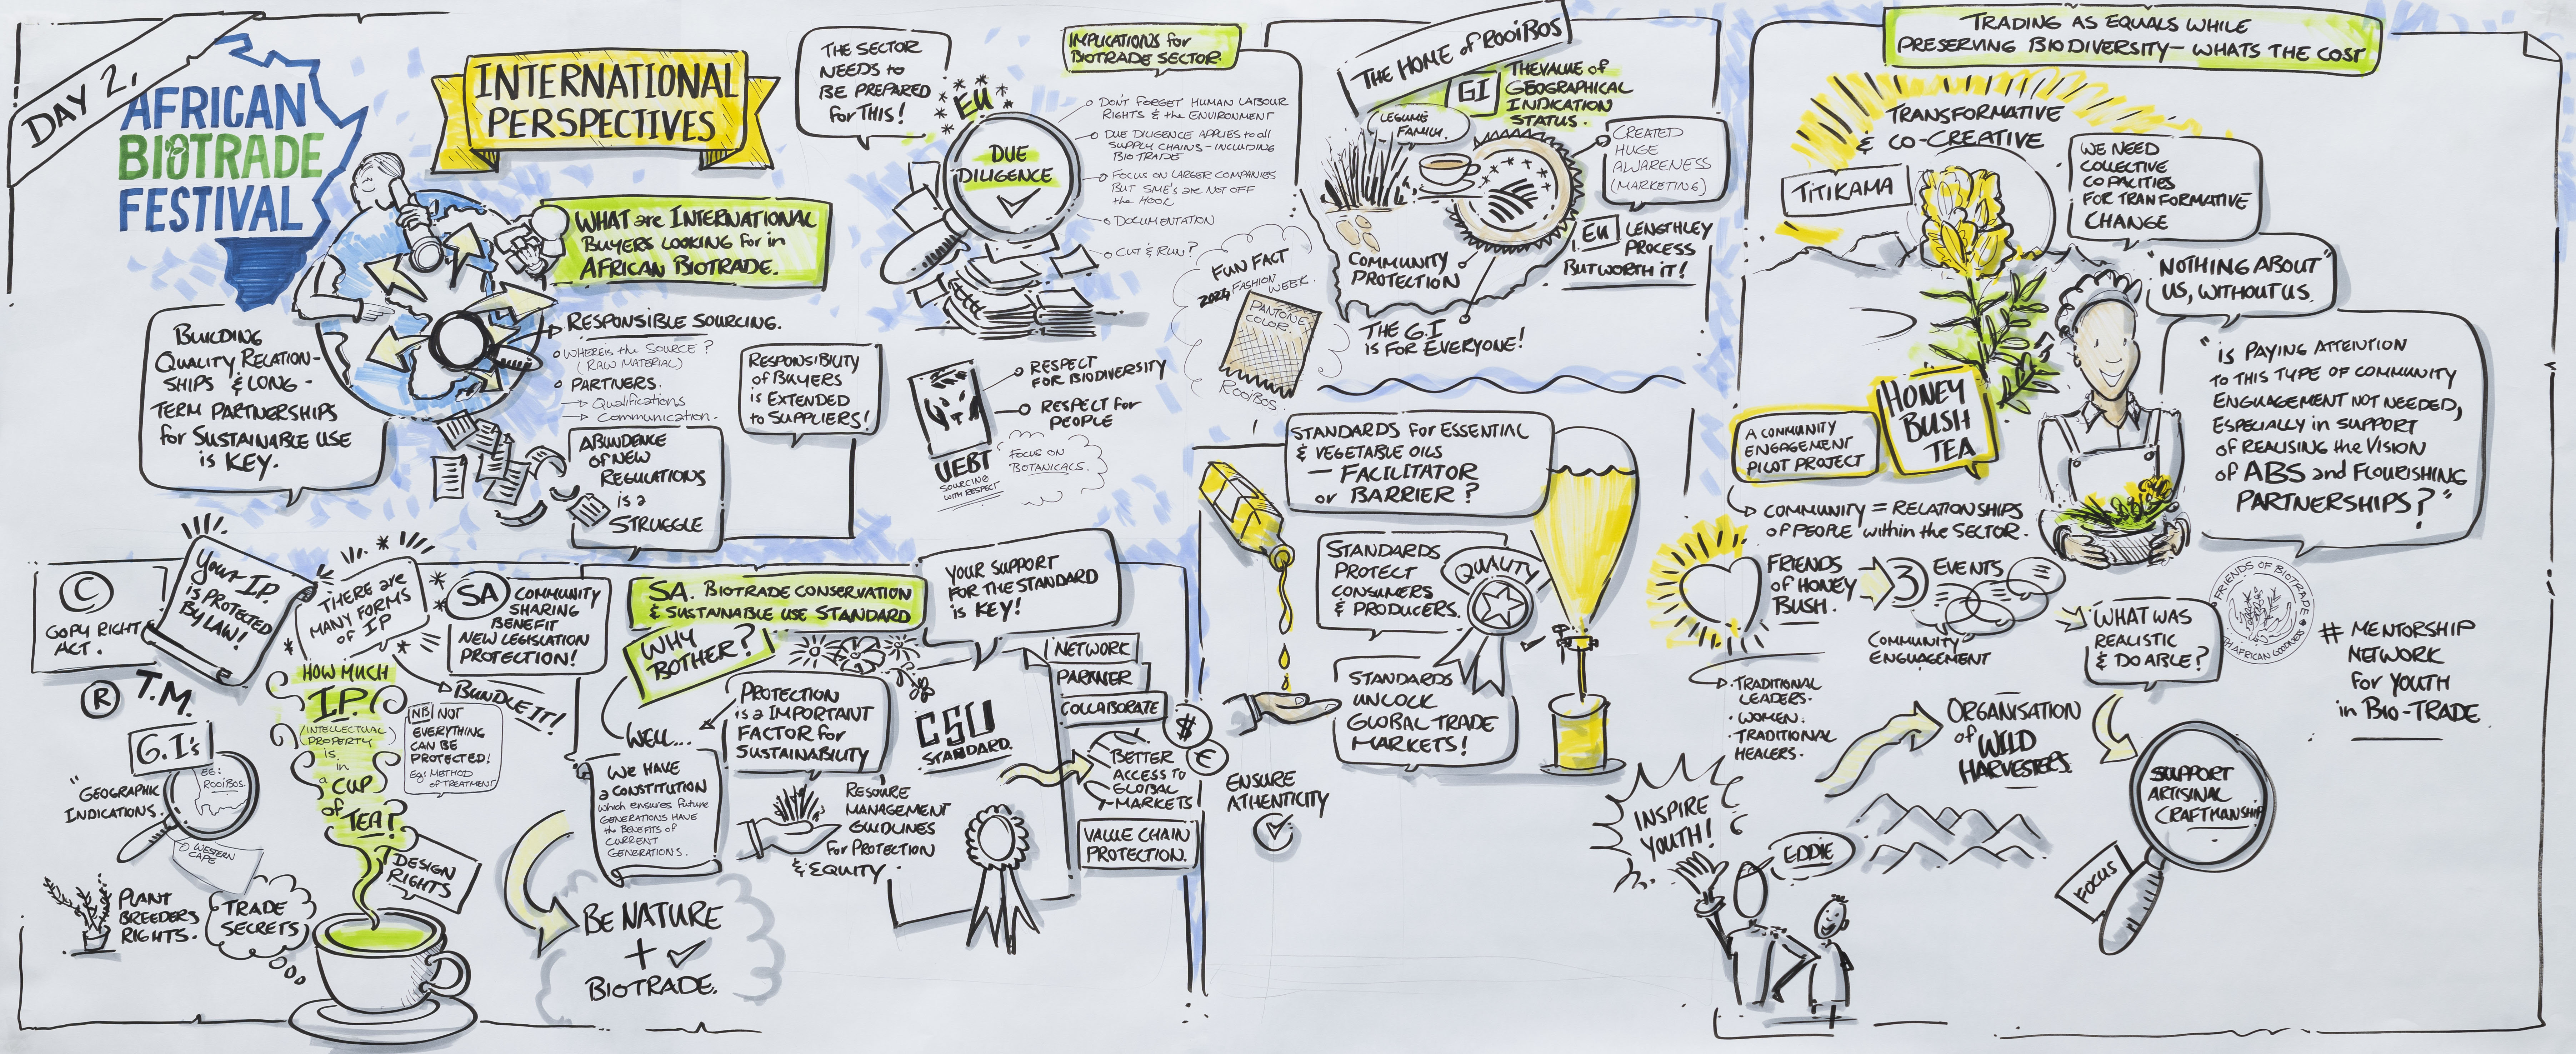 DAY 2,
AFRICAN
BIOTRADE
FESTIVAL
INTERNATIONAL
PERSPECTIVES
WHAT are INTERNATIONAL
BUYERS LOOKING for in
AFRICAN BIOTRADE.
BUILDING
QUALITY RELATION-
SHIPS & LONG-
TERM PARTNERSHIPS
for SUSTAINABLE USE
is KEY.
RESPONSIBLE SOURCING.
WHERE is the SOURCE?
(RAW MATERIAL)
PARTNERS.
Qualifications
Communication.
ABUNDENCE
OF NEW
REGULATIONS
is a
STRUGGLE
RESPONSIBILITY
of BUYERS
is EXTENDED
to SUPPLIERS!
THE SECTOR
NEEDS to
BE PREPARED
for THIS!
EU
DUE
DILIGENCE
IMPLICATIONS for
BIOTRADE SECTOR.
DON'T FORGET HUMAN LABOUR
RIGHTS & the ENVIRONMENT
DUE DILIGENCE APPLIES to all
SUPPLY CHAINS - INCLUDING
BIO TRADE
FOCUS ON LARGER COMPANIES
BUT SME'S are NOT OFF
the HOOK
DOCUMENTATION
CUT & RUN?
RESPECT
FOR BIODIVERSITY
RESPECT for
PEOPLE
UEBT
SOURCING
WITH RESPECT
FOCUS ON
BOTANICALS.
THE HOME of ROOIBOS
GI
THE VALUE of
GEOGRAPHICAL
INDICATION
STATUS.
LEGUME
FAMILY.
CREATED
HUGE
AWARENESS
(MARKETING)
EU
LENGTHLEY
PROCESS
BUT WORTH IT!
COMMUNITY
PROTECTION
THE G.I
is FOR EVERYONE!
FUN FACT
2024 FASHION
WEEK.
PANTONE
COLOR.
ROOIBOS.
STANDARDS for ESSENTIAL
& VEGETABLE OILS
— FACILITATOR
or BARRIER?
STANDARDS
PROTECT
CONSUMERS
& PRODUCERS.
QUALITY
STANDARDS
UNLOCK
GLOBAL TRADE
MARKETS!
ENSURE
ATHENTICITY
©
COPY RIGHT
ACT.
Your I.P.
is PROTECTED
BY LAW!
THERE are
MANY FORMS
of IP
SA
COMMUNITY
SHARING
BENEFIT
NEW LEGISLATION
PROTECTION!
BUNDLE IT!
® T.M.
G.I's
"GEOGRAPHIC
INDICATIONS.
EG:
ROOIBOS.
WESTERN
CAPE
PLANT
BREEDERS
RIGHTS.
TRADE
SECRETS
HOW MUCH
I.P.
(INTELLECTUAL
PROPERTY)
is
in
a
CUP
of
TEA?
NB NOT
EVERYTHING
CAN BE
PROTECTED!
Eg: METHOD
of TREATMENT
DESIGN
RIGHTS
SA. BIOTRADE CONSERVATION
& SUSTAINABLE USE STANDARD
WHY
BOTHER?
WELL...
WE HAVE
a CONSTITUTION
which ensures future
GENERATIONS HAVE
the BENEFITS OF
CURRENT
GENERATIONS.
PROTECTION
is a IMPORTANT
FACTOR for
SUSTAINABILITY
RESOURE
MANAGEMENT
GUIDLINES
for PROTECTION
& EQUITY
BE NATURE
+ ✓
BIOTRADE.
YOUR SUPPORT
FOR THE STANDARD
is KEY!
CSU
STANDARD.
NETWORK
PARTNER
COLLABORATE
$
€
BETTER
ACCESS to
GLOBAL
MARKETS
VALUE CHAIN
PROTECTION.
TRADING AS EQUALS WHILE
PRESERVING BIODIVERSITY— WHATS THE COST
TRANSFORMATIVE
& CO-CREATIVE
TITIKAMA
WE NEED
COLLECTIVE
COPALITIES
FOR TRANFORMATIVE
CHANGE
"NOTHING ABOUT"
US, WITHOUT US.
"is PAYING ATTENTION
TO THIS TYPE OF COMMUNITY
ENGUAGEMENT NOT NEEDED,
ESPECIALLY in SUPPORT
of REALISING the VISION
of ABS and FLOURISHING
PARTNERSHIPS?"
HONEY
BUSH
TEA
A COMMUNITY
ENGAGEMENT
PILOT PROJECT
COMMUNITY = RELATIONSHIPS
of PEOPLE within the SECTOR.
FRIENDS
of HONEY
BUSH.
3 EVENTS
COMMUNITY
ENGUAGEMENT
WHAT WAS
REALISTIC
& DO ABLE?
FRIENDS OF BIOTRADE
# MENTORSHIP
NETWORK
for YOUTH
in BIO-TRADE
TRADITIONAL
LEADERS.
WOMEN.
TRADITIONAL
HEALERS.
ORGANISATION
of WILD
HARVESTERS.
SUPPORT
ARTISINAL
CRAFTMANSHIP
FOCUS
INSPIRE
YOUTH!
EDDIE